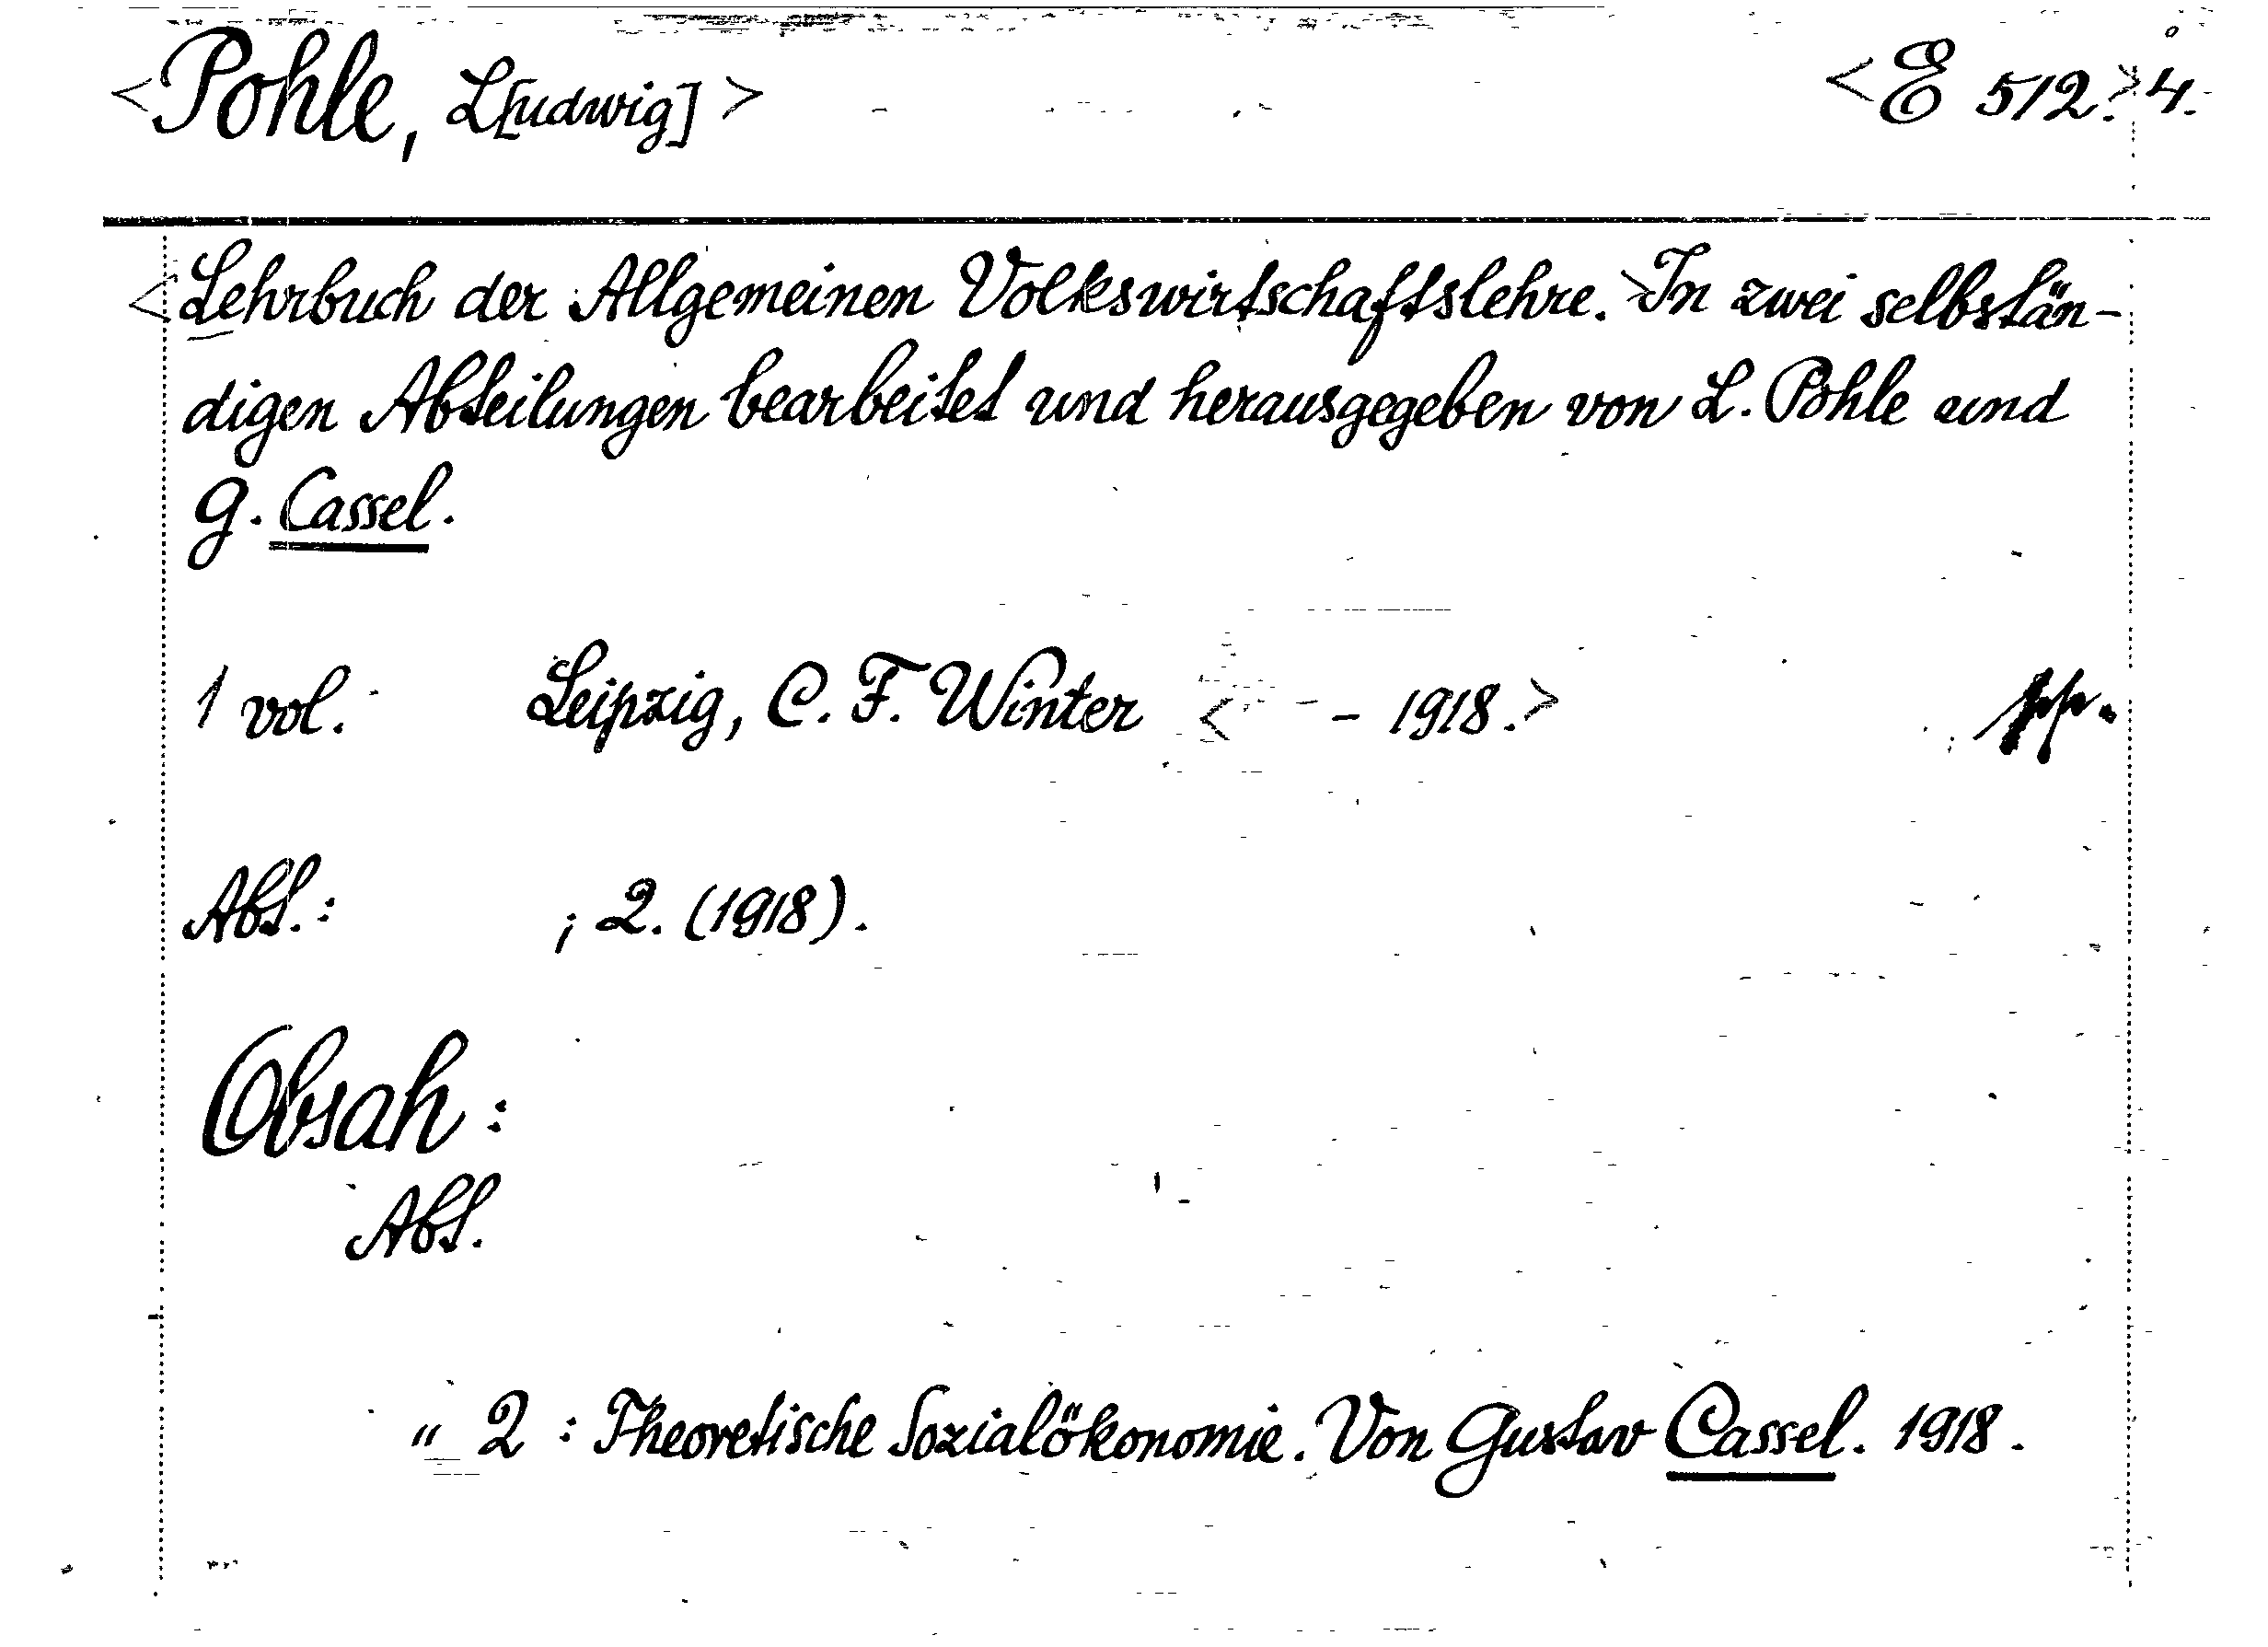 <Pohle, L[udwig]> <E 512.> 4.
<Lehrbuch der Allgemeinen Volkswirtschaftslehre.> In zwei selbstän-
digen Abteilungen bearbeitet und herausgegeben von L. Pohle und
G. Cassel.
1 vol. Leipzig, C. F. Winter < - 1918.>
Abt.: ; 2. (1918).
Obsah:
Abt.
" 2 : Theoretische Sozialökonomie. Von Gustav Cassel. 1918.